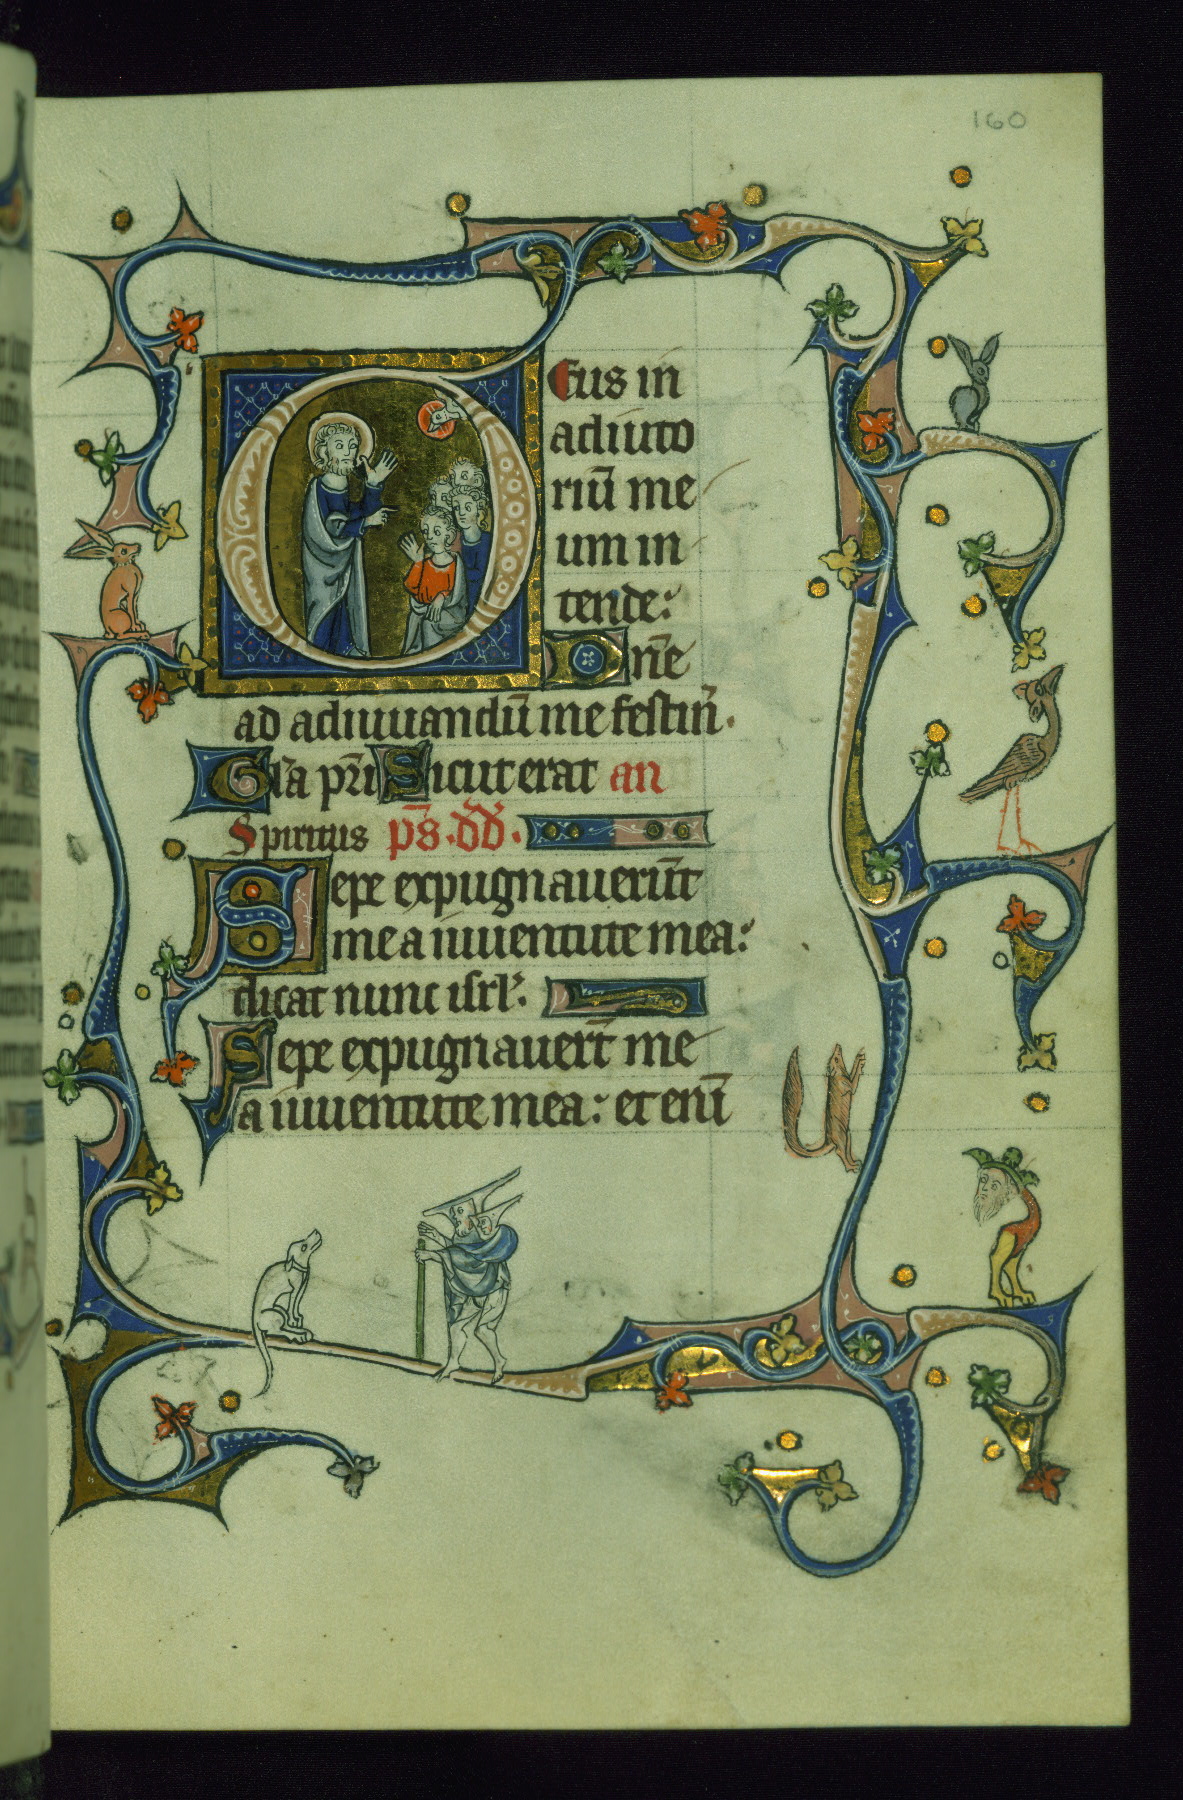 160
Deus in
adiuto
riũ me
um in
tende:
Dñe
ad adiuuandũ me festiñ.
Gl̃a pr̃i Sicut erat an
Spiritus p̃s. dd̃.
Sepe expugnauerũt
me a iuuentute mea:
dicat nunc isrl̃.
Sepe expugnauert̃ me
a iuuentute mea: et enĩ